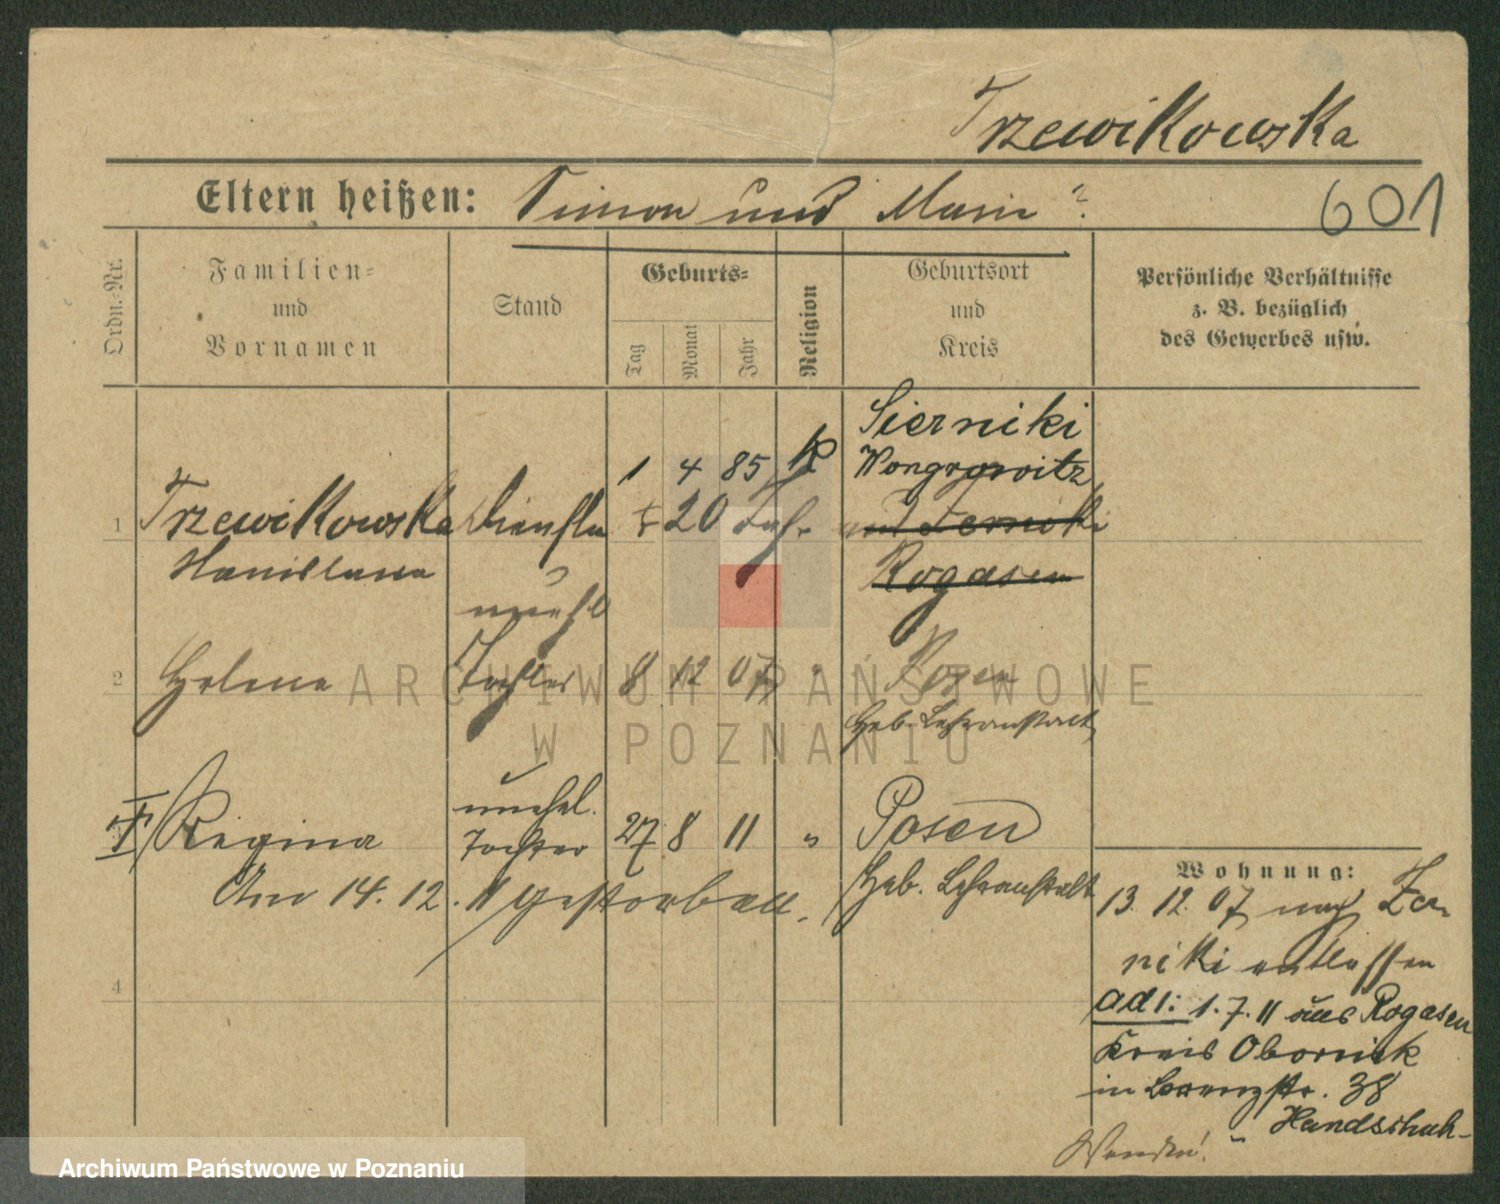 Trzewikowska
Eltern heißen: Simon und Marie ?
601
Ordn.-Nr.
Familien-
und
Vornamen
Stand
Geburts-
Tag
Monat
Jahr
Religion
Geburtsort
und
Kreis
Persönliche Verhältnisse
z. B. bezüglich
des Gewerbes usw.
Sierniki
1 4 85 K Wongrowitz
1 Trzewikowska 20 Jahr
Stanislawa Rogasen
unehl
2 Helene Tochter 8 12 07 " Posen
Geb. Lehranstalt
unehel.
Regina Tochter 27 8 11 " Posen
Am 14. 12. 11 gestorben. Geb. Lehranstalt
4
Wohnung:
13. 12. 07 nach Zer-
niki entlassen
ad 1: 1. 7. 11 aus Rogasen
Kreis Obornick
in Lorenzstr. 38
Handschuh-
Wenden!
ARCHIWUM PAŃSTWOWE
W POZNANIU
Archiwum Państwowe w Poznaniu